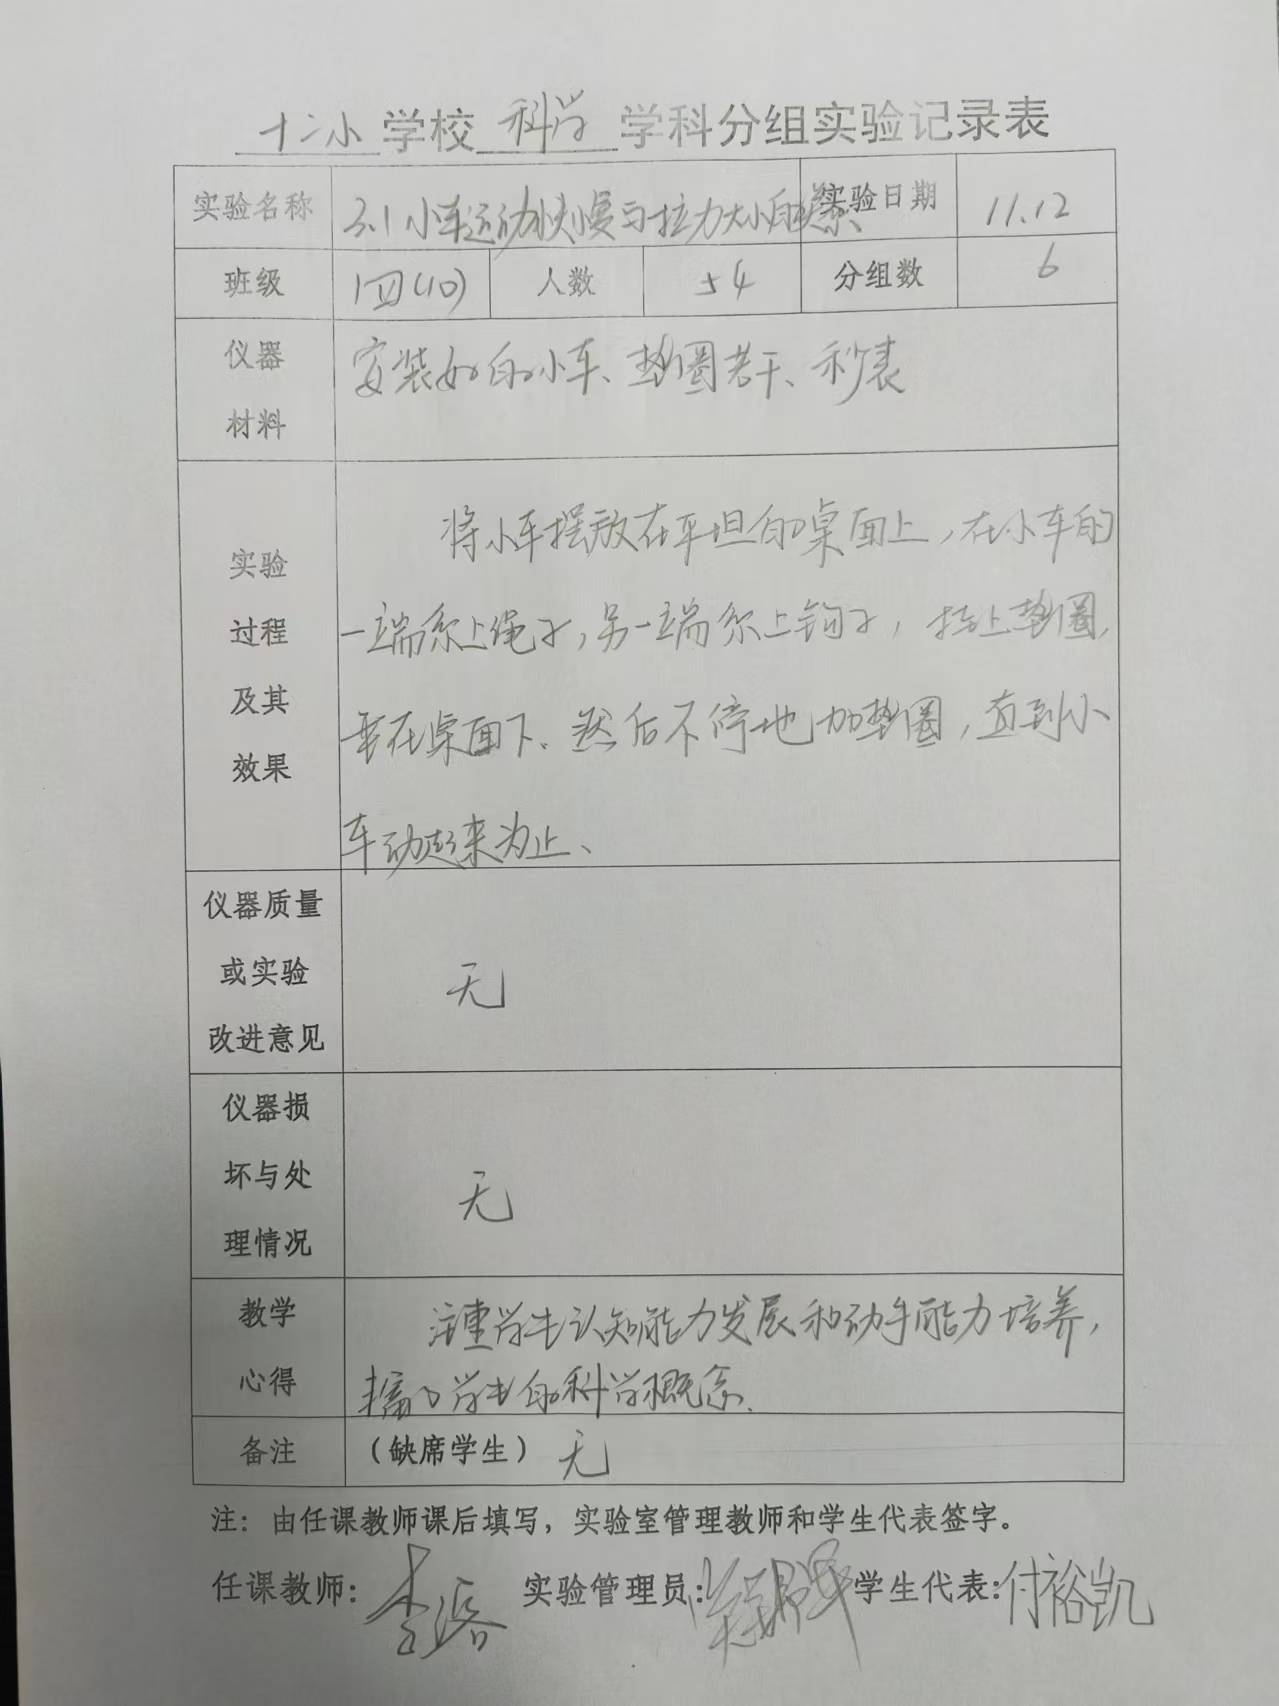 十二小学校 科学 学科分组实验记录表
实验名称 3.1小车运动快慢与拉力大小的关系 实验日期 11.12
班级 四(10) 人数 54 分组数 6
仪器 安装好的小车、垫圈若干、秒表
材料
将小车摆放在平坦的桌面上,在小车的
实验
过程 一端系上绳子,另一端系上钩子,挂上垫圈,
及其 垂在桌面下。然后不停地加垫圈,直到小
效果
车动起来为止、
仪器质量
或实验 无
改进意见
仪器损
坏与处 无
理情况
教学 注重学生认知能力发展和动手能力培养,
心得 学生的科学概念.
备注 (缺席学生) 无
注:由任课教师课后填写,实验室管理教师和学生代表签字。
任课教师: 李 实验管理员: 学生代表:付裕凯